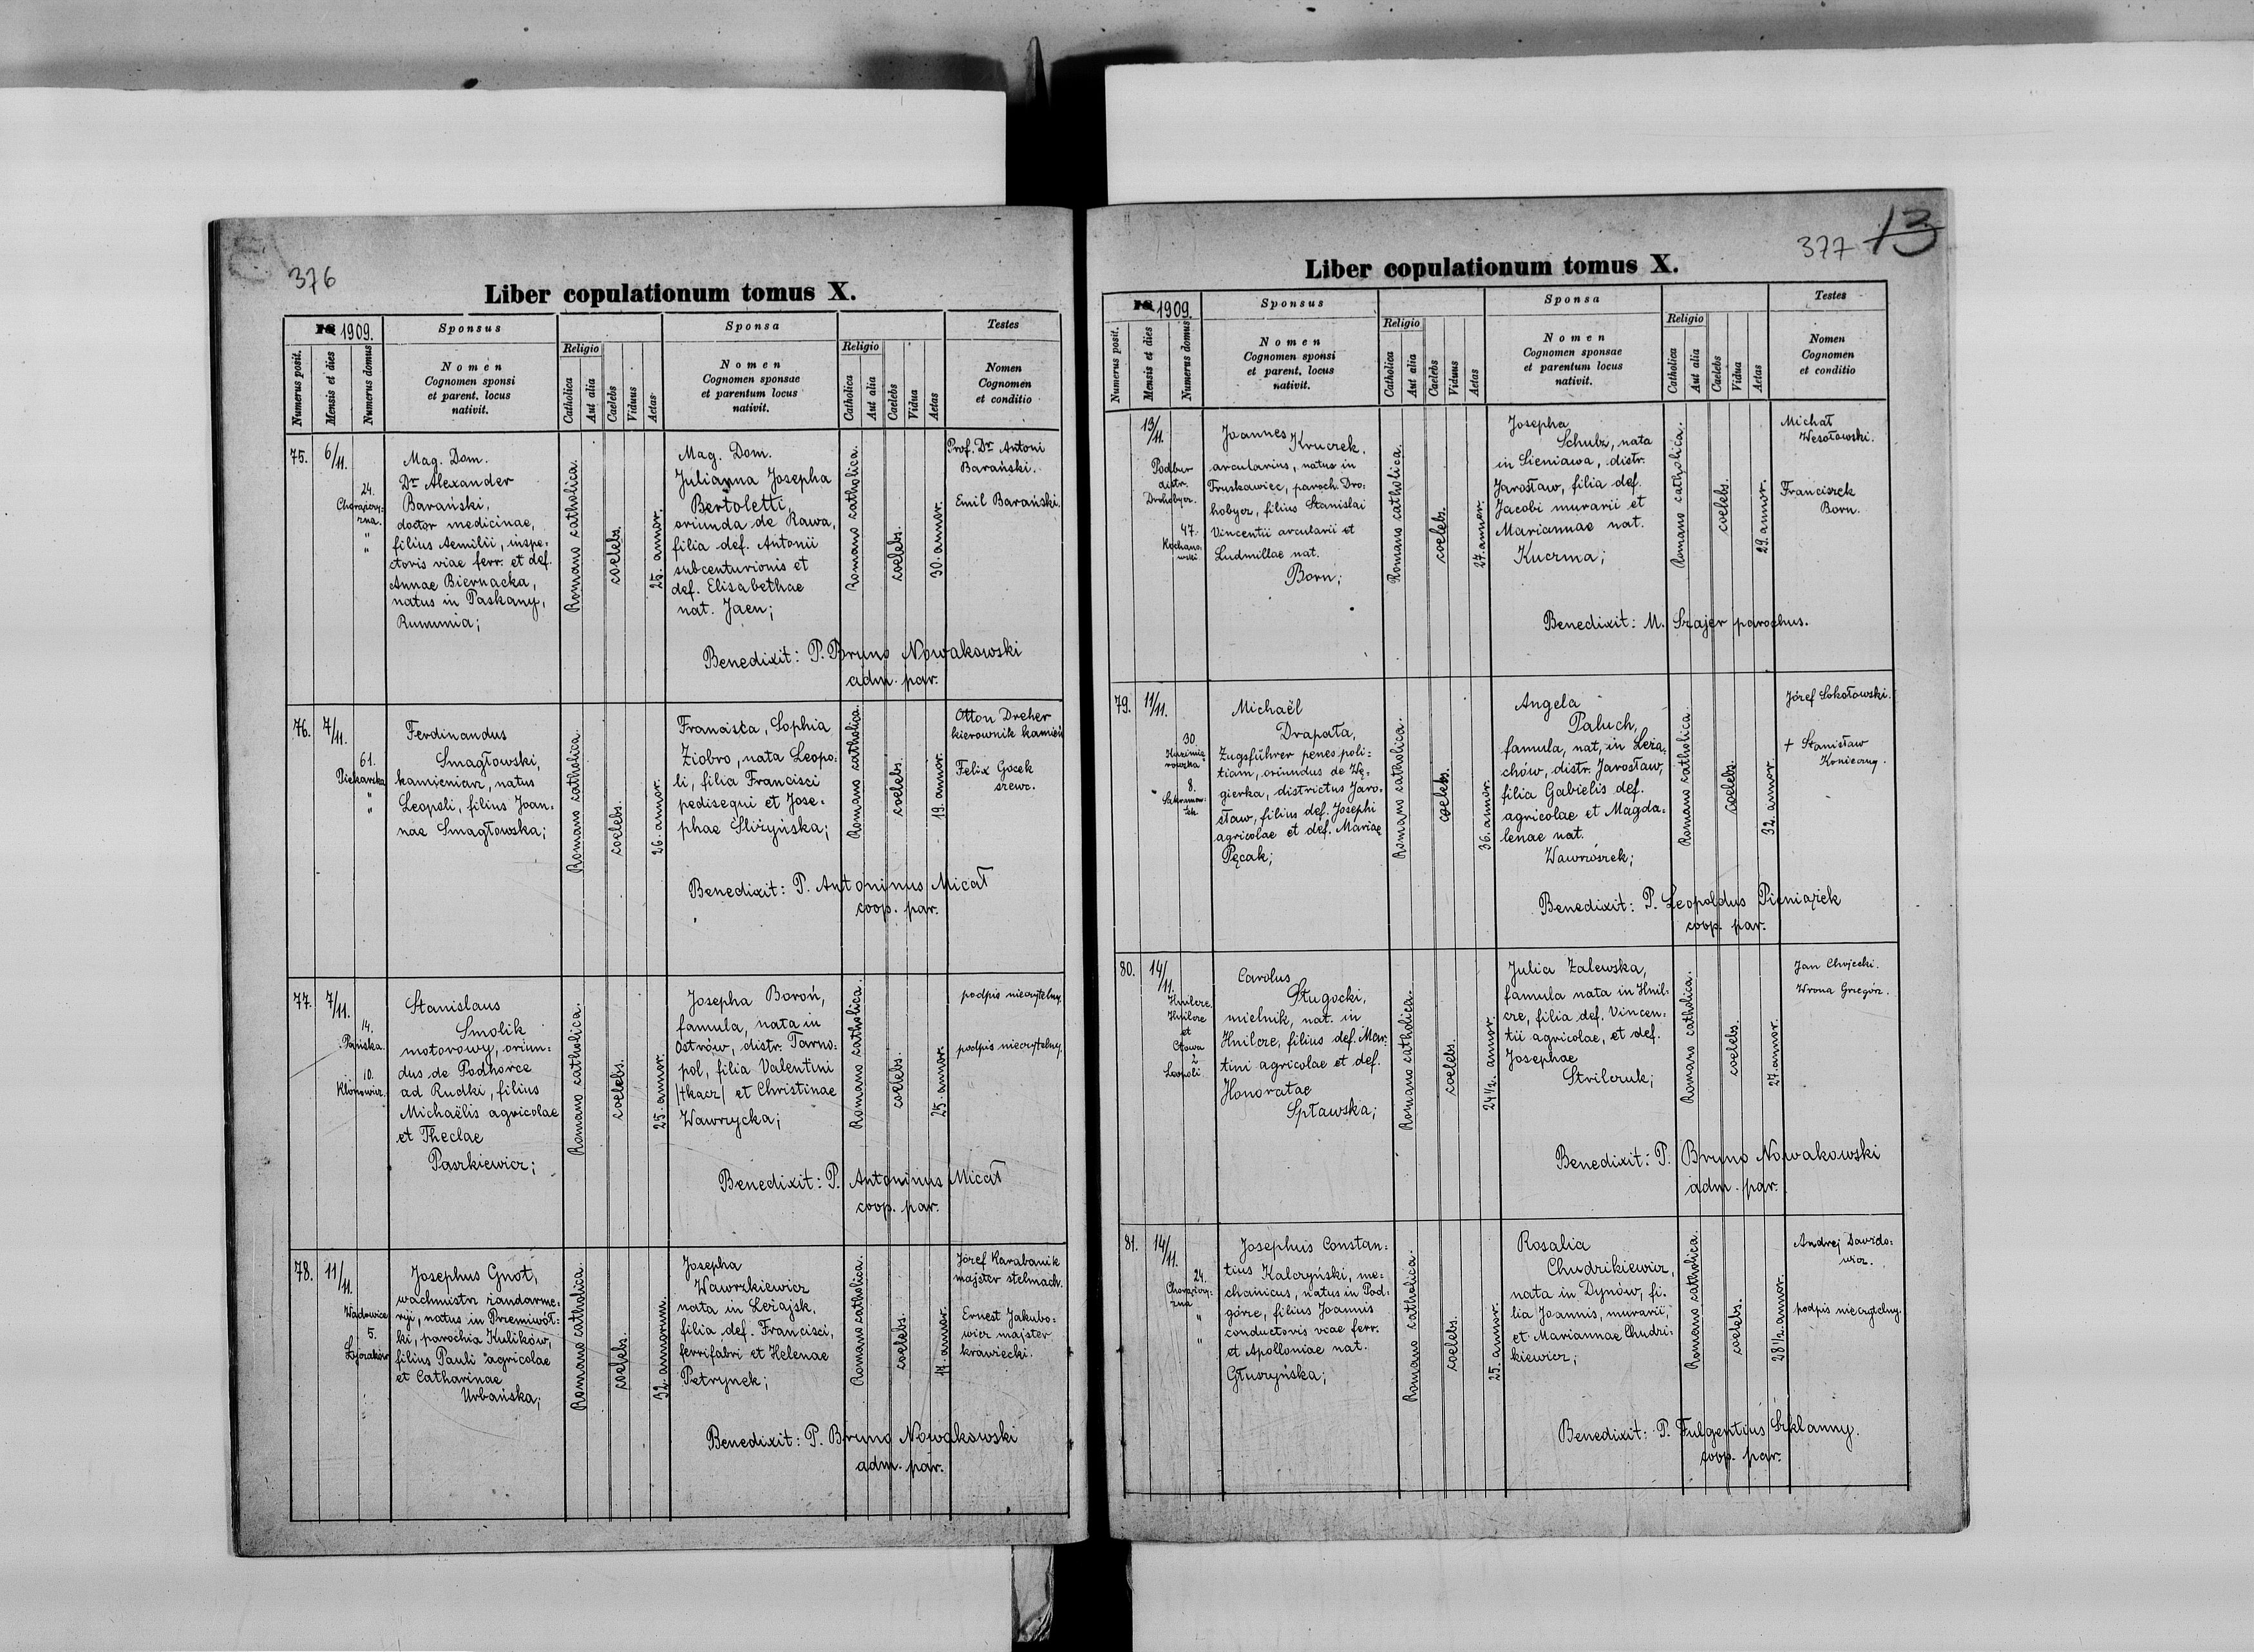 376
Liber copulationum tomus X.
1909.
Sponsus
Sponsa
Testes
Numerus posit.
Mensis et dies
Numerus domus
Nomen
Cognomen sponsi
et parent. locus
nativit.
Religio
Catholica
Aut alia
Caelebs
Viduus
Aetas
Nomen
Cognomen sponsae
et parentum locus
nativit.
Religio
Catholica
Aut alia
Caelebs
Vidua
Aetas
Nomen
Cognomen
et conditio
75.
6/11.
24.
Chorążczy-
zna.
"
"
Mag. Dom.
Dr Alexander
Barański,
doctor medicinae,
filius Aemilii, inspe-
ctoris viae ferr. et def.
Annae Biernacka,
natus in Paskany,
Rumunia;
Romano catholica.
coelebs.
25. annor.
Mag. Dom.
Julianna Josepha
Bertoletti,
oriunda de Rawa,
filia def. Antonii
subcenturionis et
def. Elisabethae
nat. Jaen;
Romano catholica.
coelebs.
30. annor.
Prof. Dr Antoni
Barański.
Emil Barański.
Benedixit: P. Bruno Nowakowski
adm. par.
76.
7/11.
61.
Piekarska
"
"
Ferdinandus
Smagłowski,
kamieniarz, natus
Leopoli, filius Joan-
nae Smagłowska;
Romano catholica.
coelebs.
26. annor.
Francisca, Sophia
Ziobro, nata Leopo-
li, filia Francisci
pedisequi et Jose-
phae Śliżyńska;
Romano catholica.
coelebs.
19. annor.
Otton Dreher
kierownik kamien
Felix Gocek
szewc.
Benedixit: P. Antoninus Micał
coop. par.
77.
7/11.
14.
Pańska.
10.
Klonowicz.
Stanislaus
Smolik
motorowy, oriun-
dus de Podhorce
ad Rudki, filius
Michaëlis agricolae
et Theclae
Paszkiewicz;
Romano catholica.
coelebs.
25. annor.
Josepha Boroń,
famula, nata in
Ostrów, distr. Tarno-
pol, filia Valentini
/tkacz/ et Christinae
Wawrzycka;
Romano catholica.
coelebs.
25. annor.
podpis nieczytelny.
podpis nieczytelny.
Benedixit: P. Antoninus Micał
coop. par.
78.
11/11.
Wadowice
5.
Josephus Gnot,
wachmistrz żandarme-
ryi, natus in Przemiwół-
ki, parochia Kulików,
filius Pauli agricolae
et Catharinae
Urbańska;
Romano catholica.
coelebs.
32. annorum.
Josepha
Wawrzkiewicz
nata in Leżajsk,
filia def. Francisci,
ferrifabri et Helenae
Petrynek;
Romano catholica.
coelebs.
annor.
Józef Karabanik
majster stelmach.
Ernest Jakubo-
wicz majster
krawiecki.
Benedixit: P. Bruno Nowakowski
adm. par.
377
13
Liber copulationum tomus X.
1909.
Sponsus
Sponsa
Testes
Numerus posit.
Mensis et dies
Numerus domus
Nomen
Cognomen sponsi
et parent. locus
nativit.
Religio
Catholica
Aut alia
Caelebs
Viduus
Aetas
Nomen
Cognomen sponsae
et parentum locus
nativit.
Religio
Catholica
Aut alia
Caelebs
Vidua
Aetas
Nomen
Cognomen
et conditio
13/11.
Podbur
distr.
Drohobycz.
47.
Kochano-
wski.
Joannes Kruczek,
arcularius, natus in
Truskawiec, paroch. Dro-
hobycz, filius Stanislai
Vincentii arcularii et
Ludmillae nat.
Born;
Romano catholica.
coelebs.
27. annor.
Josepha
Schubz, nata
in Sieniawa, distr.
Jarosław, filia def.
Jacobi murarii et
Mariannae nat.
Kuczma;
Romano catholica.
coelebs.
29. annor.
Michał
Wesołowski.
Franciszek
Born.
Benedixit: M. Szajer parochus.
79.
11/11.
30.
8.
Michaël
Drapała,
Zugsführer penes poli-
tiam, oriundus de Wę-
gierka, districtus Jaro-
sław, filius def. Josephi
agricolae et def. Mariae
Pęcak;
Romano catholica.
coelebs.
36. annor.
Angela
Paluch,
famula, nat. in Leża-
chów, distr. Jarosław,
filia Gabielis def.
agricolae et Magda-
lenae nat.
Wawrószek;
Romano catholica.
coelebs.
32. annor.
Józef Sokołowski.
+ Stanisław
Konieczny.
Benedixit: P. Leopoldus Pieniążek
coop. par.
80.
14/11.
Hnilcze.
Hnilcze
et
2
Leopoli.
Carolus
Sługocki,
mielnik, nat. in
Hnilcze, filius def. Mar-
tini agricolae et def.
Honoratae
Spławska;
Romano catholica.
coelebs.
24 1/2. annor.
Julia Zalewska,
famula nata in Hnil-
cze, filia def. Vincen-
tii agricolae, et def.
Josephae
Strilczuk;
Romano catholica.
coelebs.
27. annor.
Jan Chojecki.
Wrona Grzegórz.
Benedixit: P. Bruno Nowakowski
adm. par.
81.
14/11.
24.
Chorążczy-
zna
"
"
Josephus Constan-
tius Kalczyński, me-
chanicus, natus in Pod-
górze, filius Joannis
conductoris viae ferr.
et Apolloniae nat.
Głuszyńska;
Romano catholica.
coelebs.
25. annor.
Rosalia
Chudzikiewicz,
nata in Dynów, fi-
lia Joannis, murarii,
et Mariannae Chudzi-
kiewicz;
Romano catholica.
coelebs.
28 1/2. annor.
Andrej Dawido-
wicz.
podpis nieczytelny.
Benedixit: P. Fulgentius Szklanny.
coop. par.